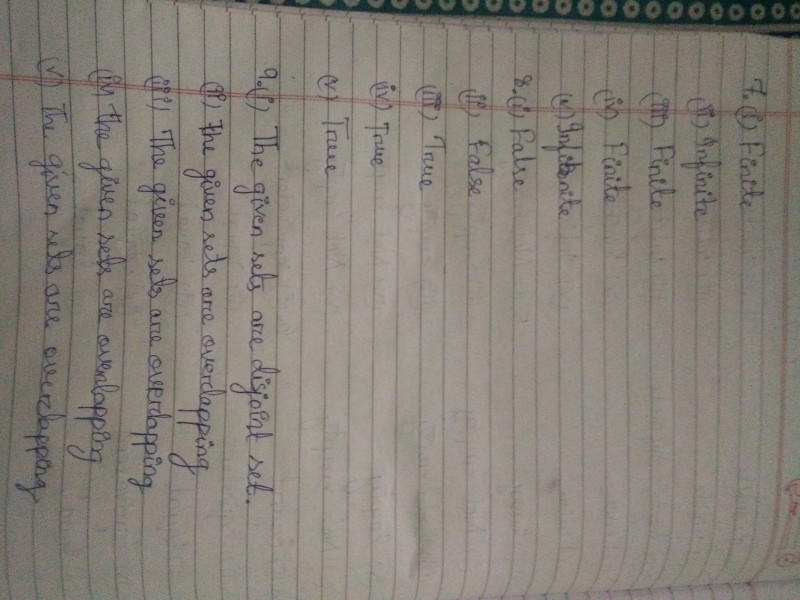 7. (i) Finite
(ii) Infinite
(iii) Finite
(iv) Finite
(v) Infinite
8. (i) False
(ii) False
(iii) True
(iv) True
(v) True
9. (i) The given sets are disjoint set.
(ii) the given sets are overlapping
(iii) The given sets are overlapping
(iv) the given sets are overlapping
(v) The given sets are overlapping